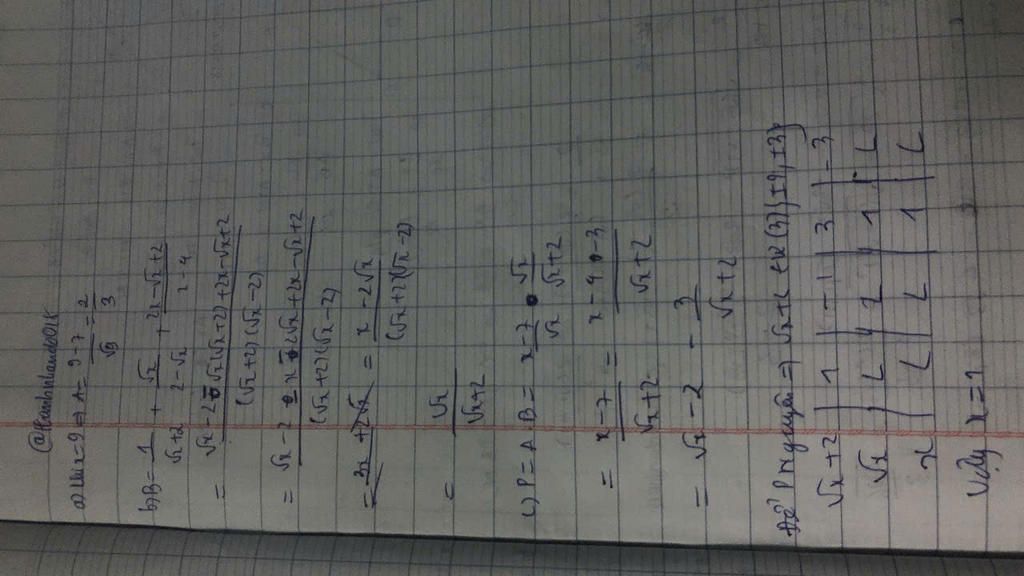 a) Khi x=9 => A = (9-7)/√9 = 2/3
b) B = 1/(√x+2) + √x/(2-√x) + (2x-√x+2)/(x-4)
= (√x-2-√x(√x+2)+2x-√x+2)/((√x+2)(√x-2))
= (√x-2-x-2√x+2x-√x+2)/((√x+2)(√x-2))
= (x-2√x)/((√x+2)(√x-2))
= √x/(√x+2)
c) P = A.B = (x-7)/√x . √x/(√x+2)
= (x-7)/(√x+2) = (x-4-3)/(√x+2)
= √x-2 - 3/(√x+2)
Để P nguyên => √x+2
√x+2 | 1 | -1 | 3 | -3
√x | L | L | 1 | L
x | L | L | 1 | L
Vậy x=1